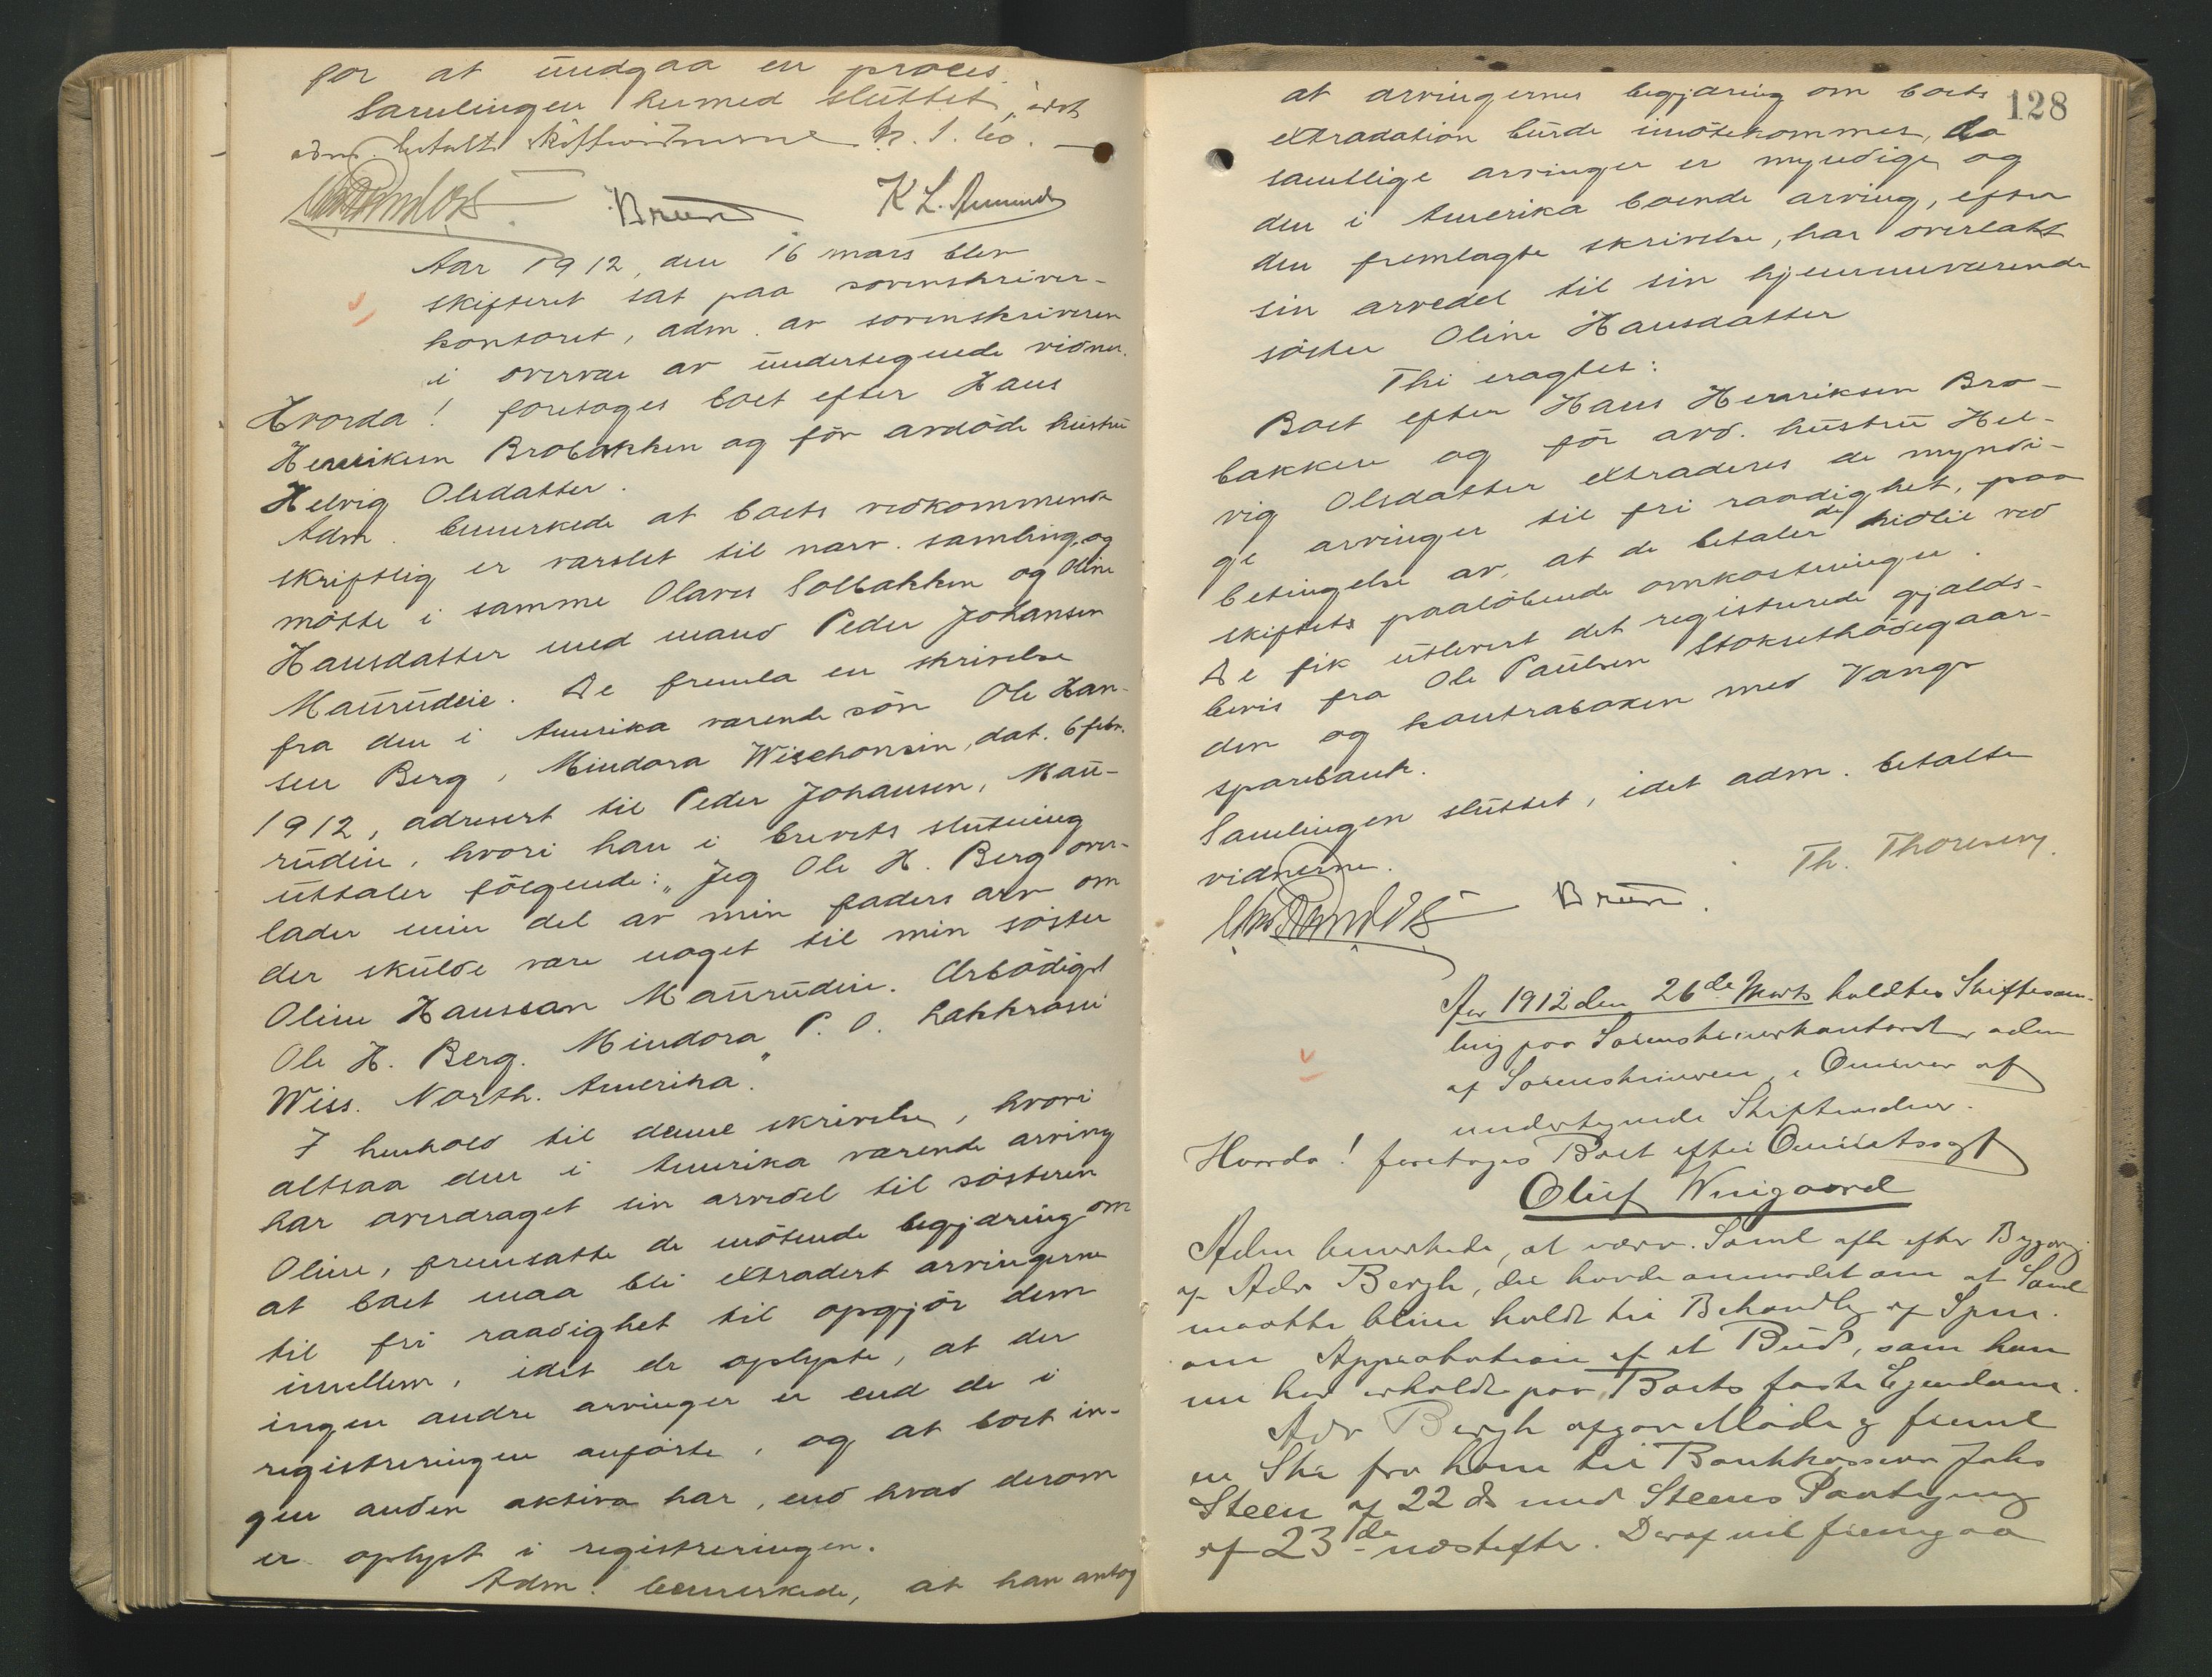 for at undgaa en proces.
Samlingen hermed sluttet, idet
adm. betalt skiftevidnerne kr. 1.60.
Brun K. L. Amund
Aar 1912, den 16 mars blev
skifteret sat paa sorenskriver-
kontoret, adm. av sorenskriveren
i overvær av undertegnede vidner.
Hvorda! foretoges boet efter Hans
Henriksen Brobakken og før avdöde hustru
Helvig Olsdatter.
Adm. bemerkede at boets vedkommende
skriftlig er varslet til nærv. samling, og
mötte i samme Olaves Solbakken og Oline
Hansdatter med mand Peder Johansen
Maurudeie. De fremla en skrivelse
fra den i Amerika værende sön Ole Han-
sen Berg, Mindora Wischonsin, dat. 6 febr.
1912, adresert til Peder Johansen, Mau-
rudeie, hvori han i brevets slutning
uttaler fölgende: „Jeg Ole H. Berg over-
lader min del av min faders arv om
der skulde være noget til min söster
Oline Hanssan Maurudeie. Ærbödigst
Ole H. Berg. Mindora P. O. Lakkrosse
Wiss. North. Amerika."
I henhold til denne skrivelse, hvori
altsaa den i Amerika værende arving
har overdraget sin arvedel til sösteren
Oline, fremsatte de mötende begjæring om
at boet maa bli extradert arvingerne
til fri raadighet til opgjör dem
imellem, idet de oplyste, at der
ingen andre arvinger er end de i
registreringen anförte, og at boet in-
gen anden aktiva har, end hvad derom
er oplyst i registreringen.
Adm. bemerkede, at han antog
128
at arvingernes begjæring om boets
extradation burde imötekommes, da
samtlige arvinger er myndige og
den i Amerika boende arving, efter
den fremlagte skrivelse, har overlatt
sin arvedel til sin hjemmeværende
söster Oline Hansdatter
Thi eragtes:
Boet efter Hans Henriksen Bro-
bakken og før avd. hustru Hel-
vig Olsdatter extraderes de myndi-
ge arvinger til fri raadighet, paa
betingelse av, at de betaler de hidtil ved
skiftets paalöbende omkostninger.
De fik utlevert det registrerede gjælds-
bevis fra Ole Paulsen Stoksethödegaar-
den og kontraboken med Vangs
sparebank.
Samlingen sluttet, idet adm. betalte
vidnerne.
Brun. Th. Thoresen
Aar 1912 den 26de Marts holdtes Skiftesam-
ling paa Sorenskriverkontoret, adm
af Sorenskriveren i Overvær af
undertegnede Skiftevidner.
Hvorda! foretoges Boet efter
Oluf Wiigaard
Adm bemerkede, at nærv. Saml afh efter Begjæring
af Adv Bergh, der havde anmodet om at Saml
maatte blive holdt til Behandlg af Spm.
om Approbation af et Bud, som han
nu har erholdt paa Boets faste Ejendom.
Adv Bergh afgav Möde og freml
en Skr fra ham til Bankkasserer Johs
Steen af 22 ds med Steens Paategning
af 23de næstefter. Deraf vil fremgaa